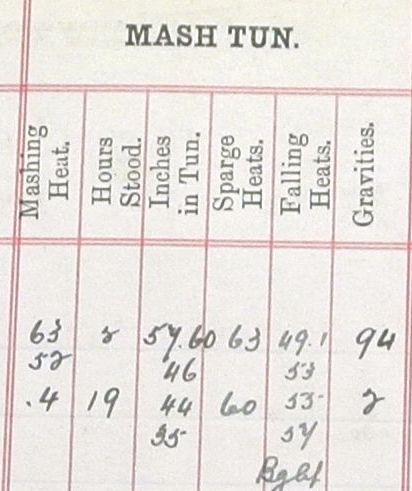 MASH TUN.
Mashing Heat. Hours Stood. Inches in Tun. Sparge Heats. Falling Heats. Gravities.
63 2 57.60 63 49.1 94
52 46 53
.4 19 44 60 53 2
35 54